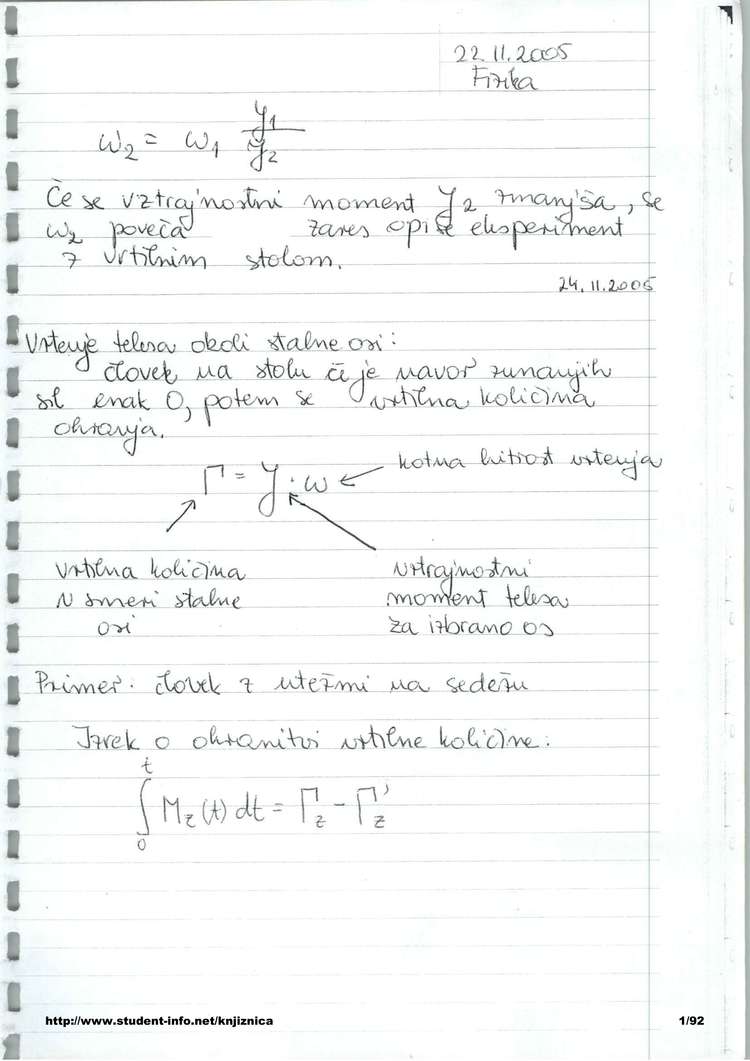 22.11.2005
Fizika
ω₂ = ω₁ J₁/J₂
Če se vztrajnostni moment J₂ zmanjša, se
ω₂ poveča zares opiše eksperiment
z vrtilnim stolom.
24.11.2005
Vrtenje telesa okoli stalne osi:
človek na stolu če je navor zunanjih
sil enak 0, potem se vrtilna količina
ohranja.
Γ = J · ω ← kotna hitrost vrtenja
vrtilna količina vztrajnostni
v smeri stalne moment telesa
osi za izbrano os
Primer: človek z utežmi na sedežu
Izrek o ohranitvi vrtilne količine:
∫₀ᵗ M_z(t) dt = Γ_z - Γ_z'
http://www.student-info.net/knjiznica 1/92